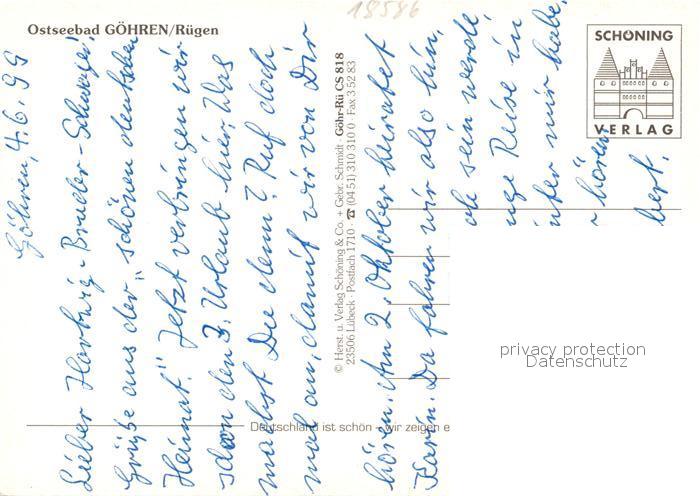 18586
Ostseebad GÖHREN/Rügen
SCHÖNING
VERLAG
© Herst. u. Verlag Schöning & Co. + Gebr. Schmidt · Göhr-Rü CS 818
23506 Lübeck · Postfach 1710 · ☎ (04 51) 310 310 0 · Fax 3 52 83
Deutschland ist schön - wir zeigen e
privacy protection
Datenschutz
Göhren, 4.6.99
Lieber Bruder-Schwager!
Grüße aus der "schönen deutschen
Heimat." Jetzt verbringen wir
schon den 3. Urlaub hier. Was
machst Du denn? Ruf doch
mal an, damit wir von Dir
hören. Am 2. Oktober heiratet
Karin. Da fahren wir also hin,
ok sein werde
uge Reise in
nter mir habe.
hören
bert.